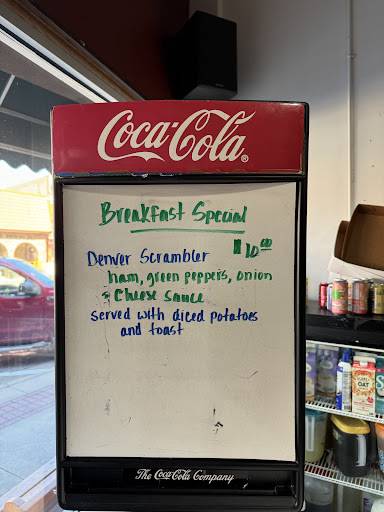 Coca-Cola®
Breakfast Special
$10.00
Denver Scrambler
ham, green peppers, onion
& Cheese sauce
served with diced potatoes
and toast
The Coca-Cola Company
OAT